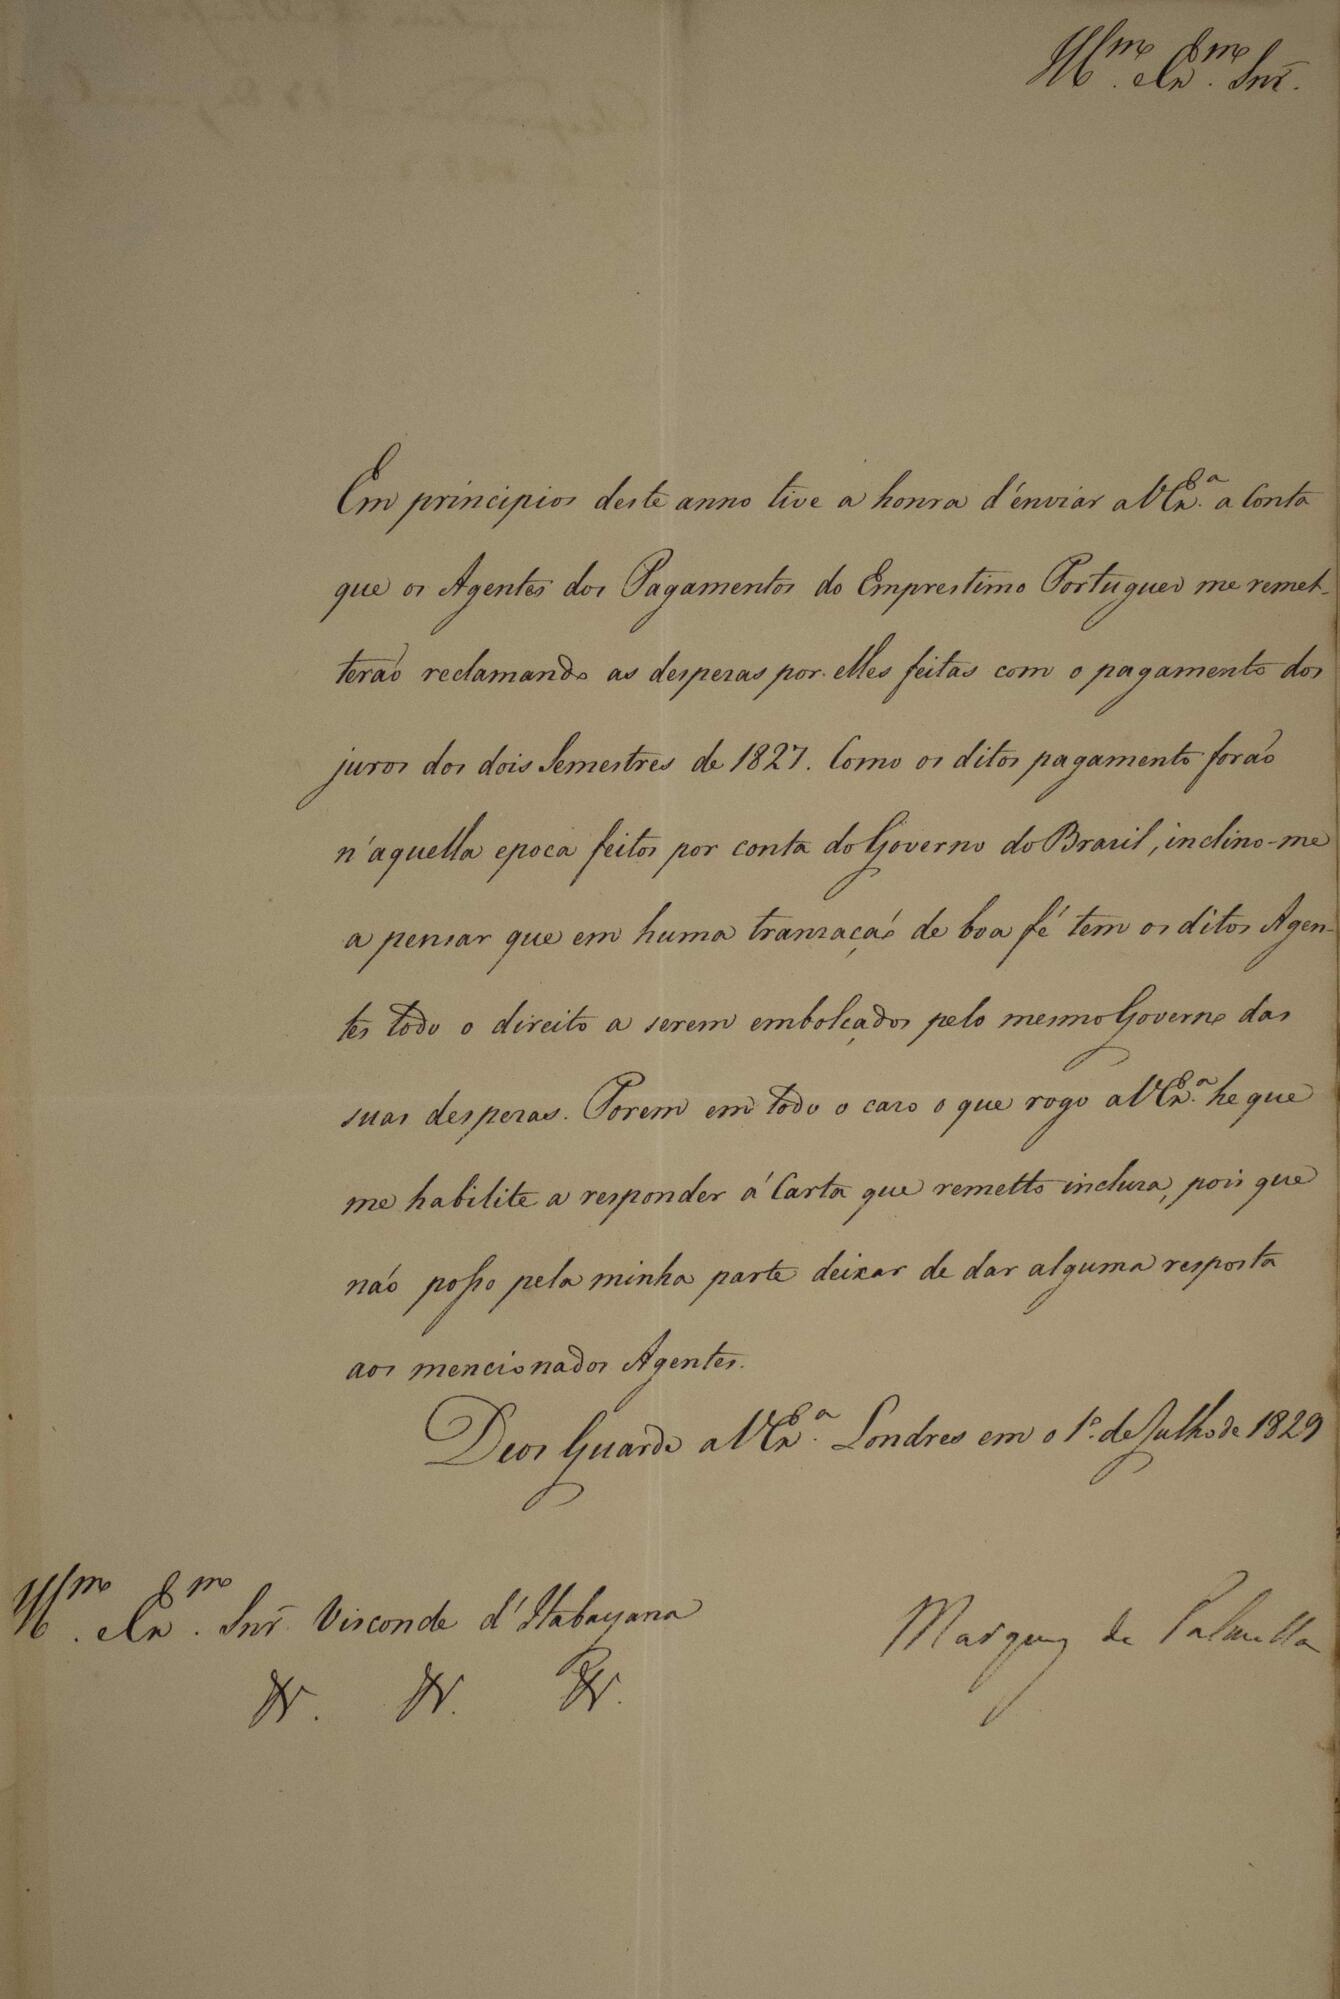 Illmo. e Exmo. Snr.
Em principios deste anno tive a honra d'enviar a V Exa. a Conta
que os Agentes dos Pagamentos do Emprestimo Portuguez me remet-
terão reclamando as despezas por elles feitas com o pagamento dos
juros dos dois Semestres de 1827. Como os ditos pagamento forão
n'aquella epoca feitos por conta do Governo do Brazil, inclino-me
a pensar que em huma tranzação de boa fé tem os ditos Agen-
tes todo o direito a serem embolçados pelo mesmo Governo das
suas despezas. Porem em todo o cazo o que rogo a V Exa. he que
me habilite a responder á Carta que remetto incluza, pois que
não posso pela minha parte deixar de dar alguma resposta
aos mencionados Agentes.
Deos Guarde a V Exa. Londres em o 1º. de Julho de 1829
Illmo. e Exmo. Snr. Visconde d'Itabayana
Marquez de Palmella
&. &. &.